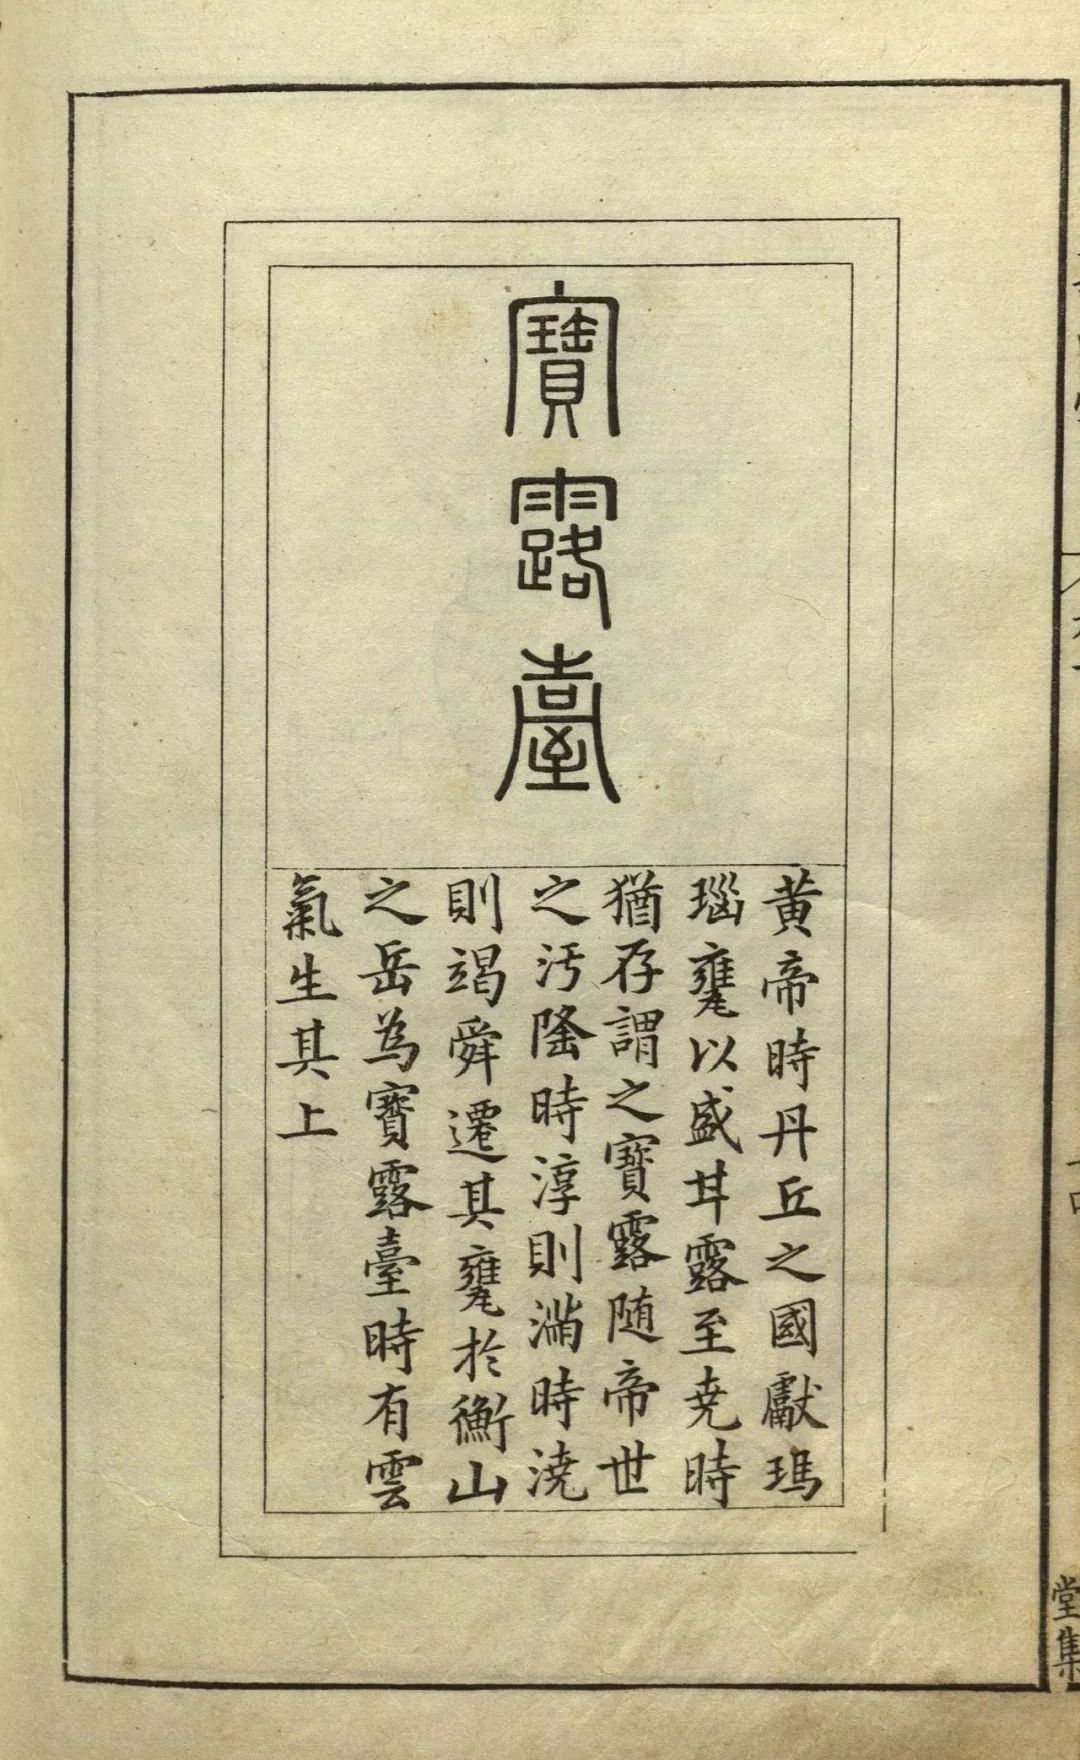 寶露臺
黃帝時丹丘之國獻瑪
瑙甕以盛甘露至尭時
猶存謂之寶露随帝世
之汚隆時淳則滿時澆
則竭舜遷其甕於衡山
之岳為寶露臺時有雲
氣生其上
堂集